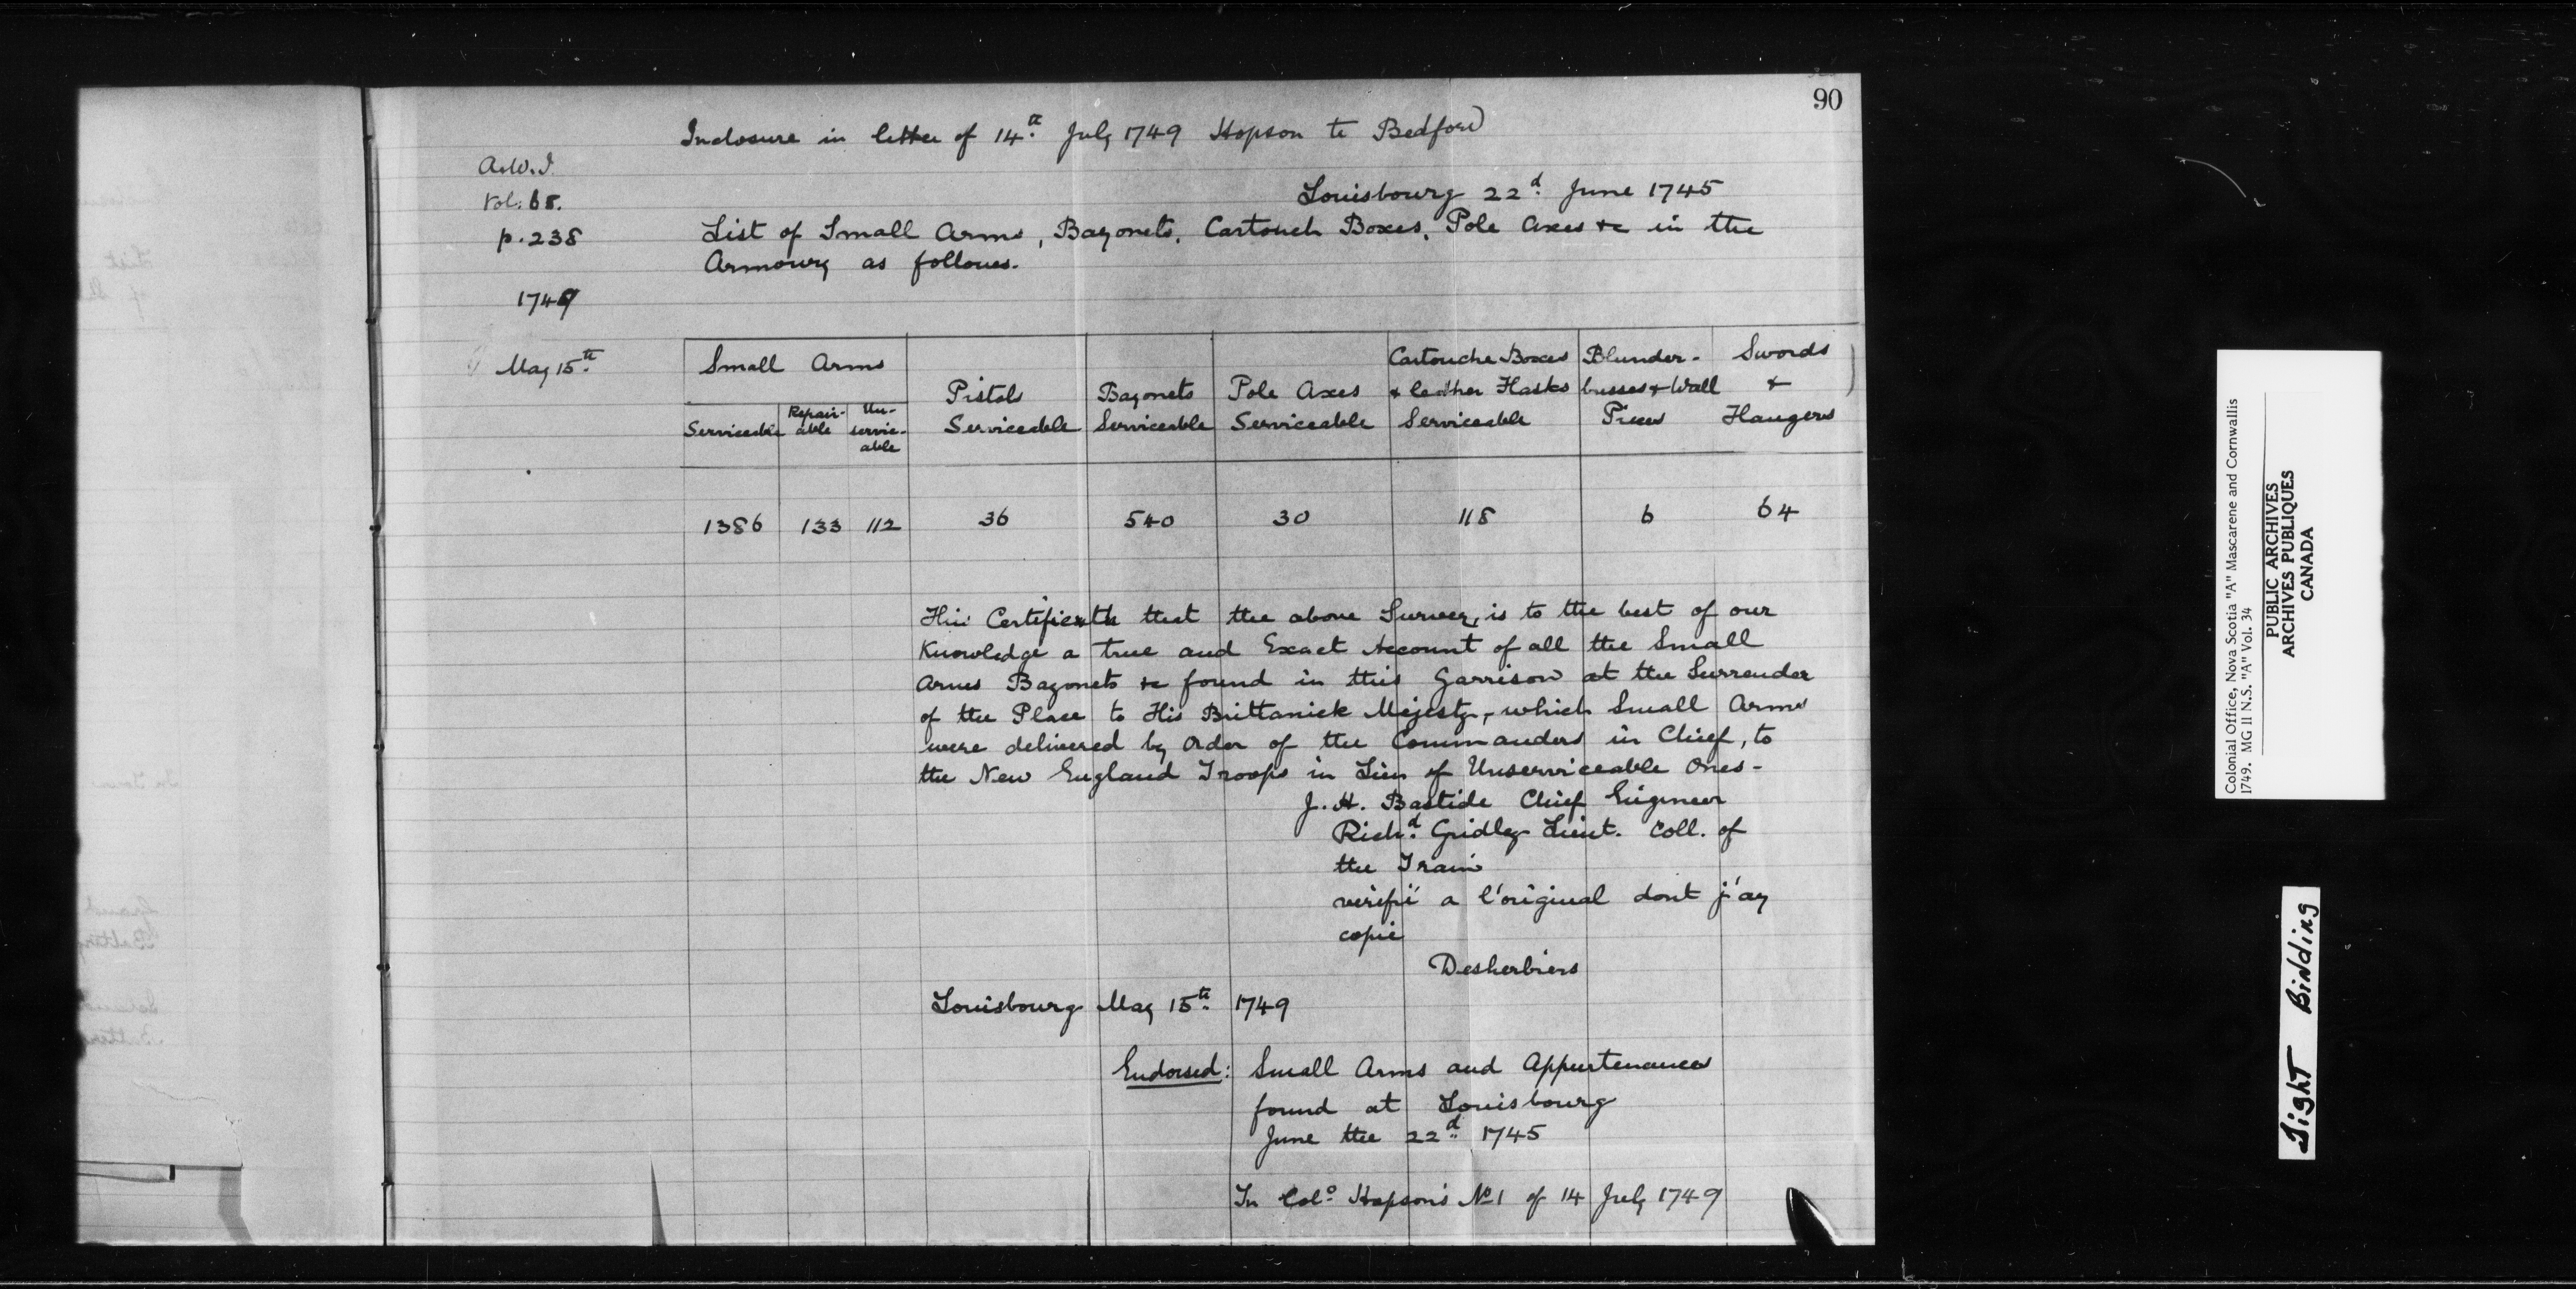 90
Inclosure in letter of 14th July 1749 Hopson to Bedford
A.W.I.
Vol. 65.
p. 238
1749
May 15th
Louisbourg 22d June 1745
List of Small Arms, Bayonets, Cartouch Boxes, Pole Axes &c in the
Armoury as followes.
Small Arms
Serviceable
Repair-
able
Un-
servic-
able
Pistols
Serviceable
Bayonets
Serviceable
Pole Axes
Serviceable
Cartouche Boxes
& leather Flasks
Serviceable
Blunder-
busses & Wall
Pieces
Swords
&
Hangers
1386 133 112 36 540 30 118 6 64
This Certifieth that the above Survey, is to the best of our
Knowledge a true and Exact Account of all the Small
Arms Bayonets &c found in this Garrison at the Surrender
of the Place to His Brittanick Majesty, which Small Arms
were delivered by Order of the Commanders in Chief, to
the New England Troops in Lieu of Unserviceable Ones-
J. H. Bastide Chief Engineer
Richd Gridley Lieut. Coll. of
the Train
verifié a l'original dont j'ay
copie
Desherbiers
Louisbourg May 15th 1749
Endorsed: Small Arms and Appurtenances
found at Louisbourg
June the 22d 1745
In Colo Hopson's No 1 of 14 July 1749
Colonial Office, Nova Scotia "A" Mascarene and Cornwallis
1749. MG 11 N.S. "A" Vol. 34
PUBLIC ARCHIVES
ARCHIVES PUBLIQUES
CANADA
Tight Binding